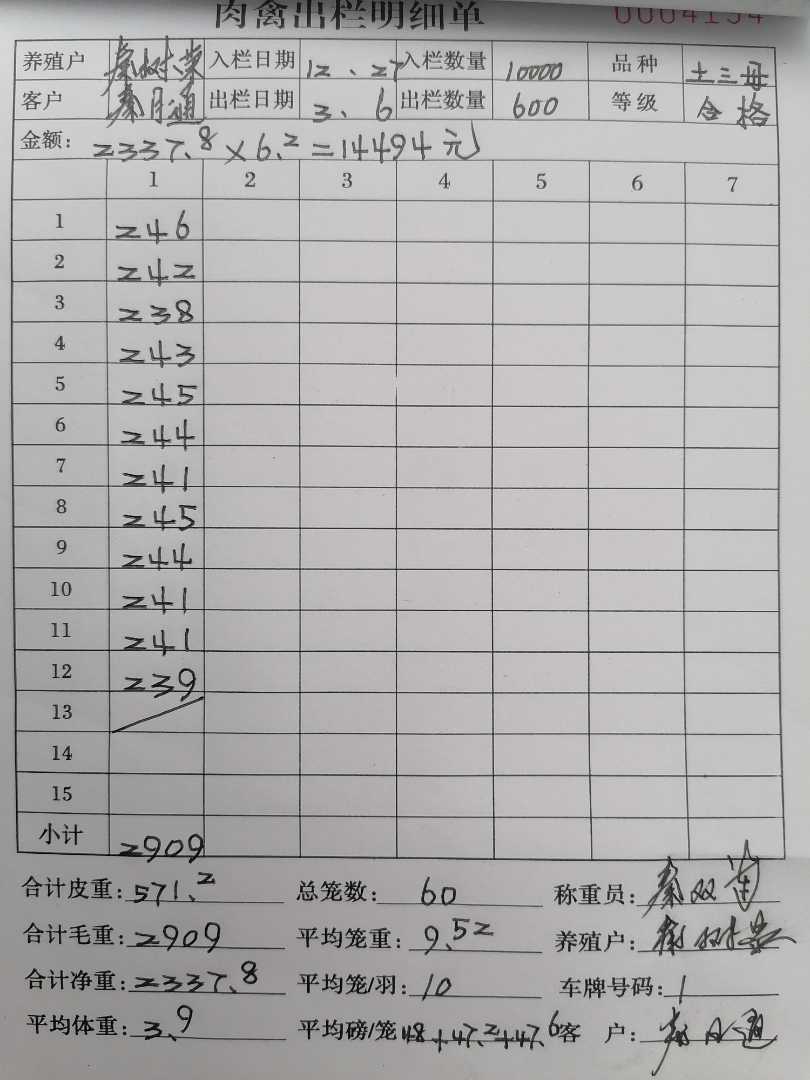 肉禽出栏明细单 0004154
养殖户 秦树荣 入栏日期 12、27 入栏数量 10000 品种 土三母
客户 秦月通 出栏日期 3、6 出栏数量 600 等级 合格
金额: 2337.8×6.2=14494元
1 2 3 4 5 6 7
1 246
2 242
3 238
4 243
5 245
6 244
7 241
8 245
9 244
10 241
11 241
12 239
13
14
15
小计 2909
合计皮重: 571.2 总笼数: 60 称重员: 秦双
合计毛重: 2909 平均笼重: 9.52 养殖户: 树荣
合计净重: 2337.8 平均笼/羽: 10 车牌号码: 1
平均体重: 3.9 平均磅/笼 48+47.2+47.6 客 户: 通